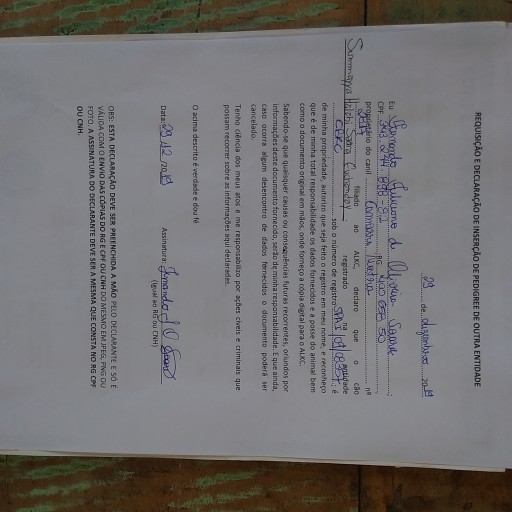 REQUISIÇÃO E DECLARAÇÃO DE INSERÇÃO DE PEDIGREE DE OUTRA ENTIDADE
29 de dezembro 2019
Eu Fernando
CPF RG
proprietário do canil
filiado ao ALKC, declaro que o cão
registrado na entidade
CBKC sob o número de registro é
de minha propriedade, autorizo que seja feito o registro em meu nome, e reconheço
que é de minha total responsabilidade os dados fornecidos e a posse do animal bem
como o documento original em mãos, onde forneço a cópia digital para o ALKC.
Sabendo-se que quaisquer causas ou consequências futuras recorrentes, oriundos por
informações deste documento fornecido, serão de minha responsabilidade. E que ainda,
caso ocorra algum desencontro de dados fornecidos o documento poderá ser
cancelado.
Tenho ciência dos meus atos e me responsabilizo por ações cíveis e criminais que
possam recorrer sobre as informações aqui declaradas.
O acima descrito é verdade e dou fé
Data: 29/12/2019 Assinatura: Fernando
(igual ao RG ou CNH)
OBS: ESTA DECLARAÇÃO DEVE SER PREENCHIDA A MÃO PELO DECLARANTE E SÓ É
VÁLIDA COM O ENVIO DAS CÓPIAS DO RG E CPF OU CNH DO MESMO EM JPEG, PNG OU
FOTO. A ASSINATURA DO DECLARANTE DEVE SER A MESMA QUE CONSTA NO RG CPF
OU CNH.